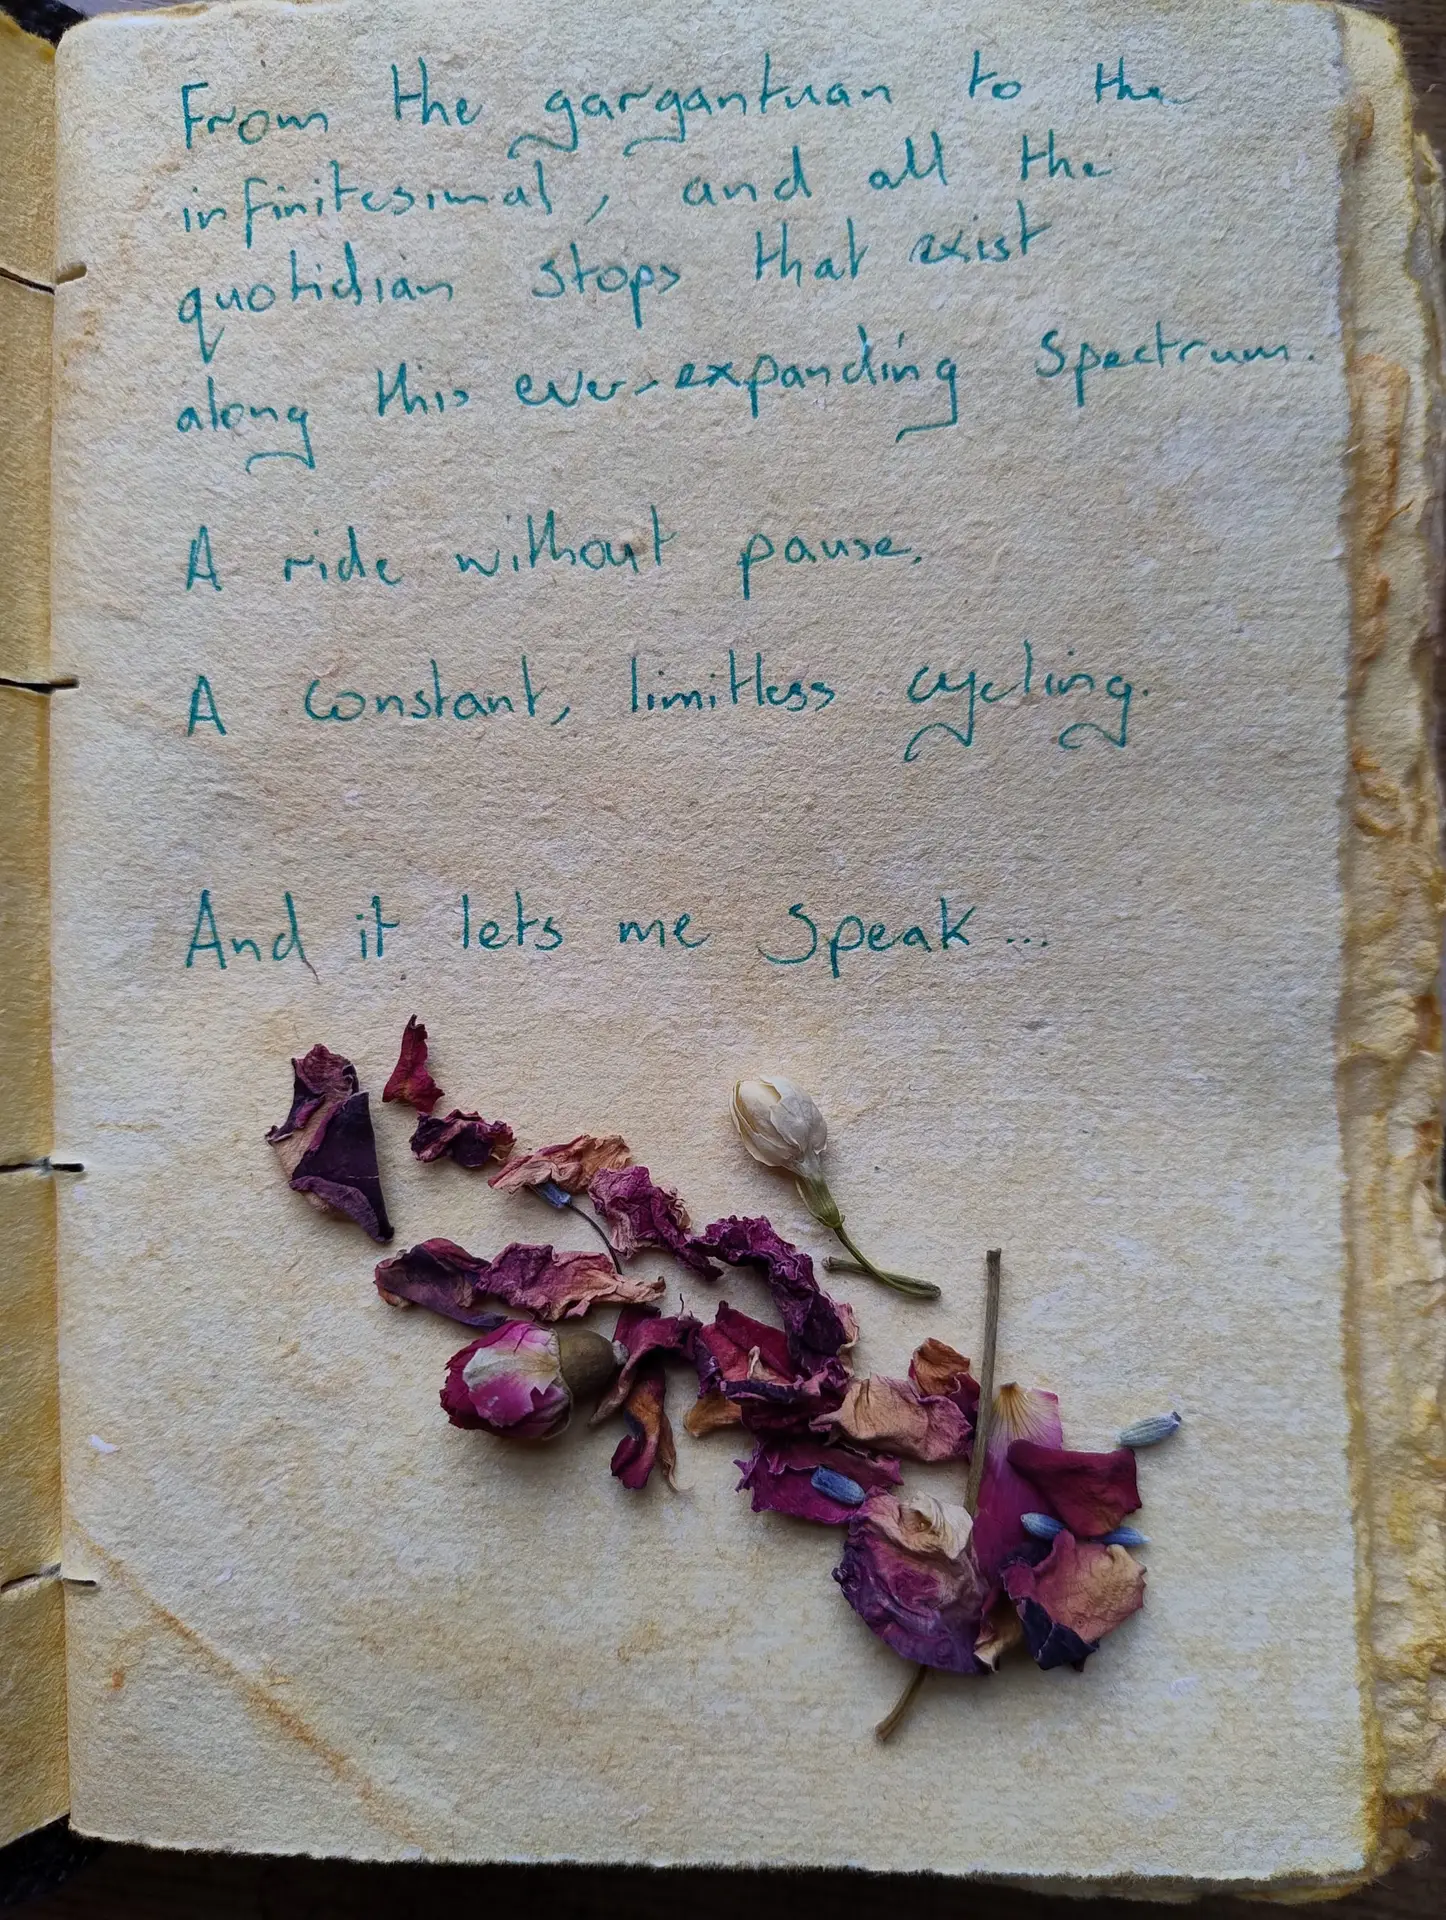 From the gargantuan to the
infinitesimal, and all the
quotidian stops that exist
along this ever-expanding spectrum.
A ride without pause.
A constant, limitless cycling.
And it lets me speak...